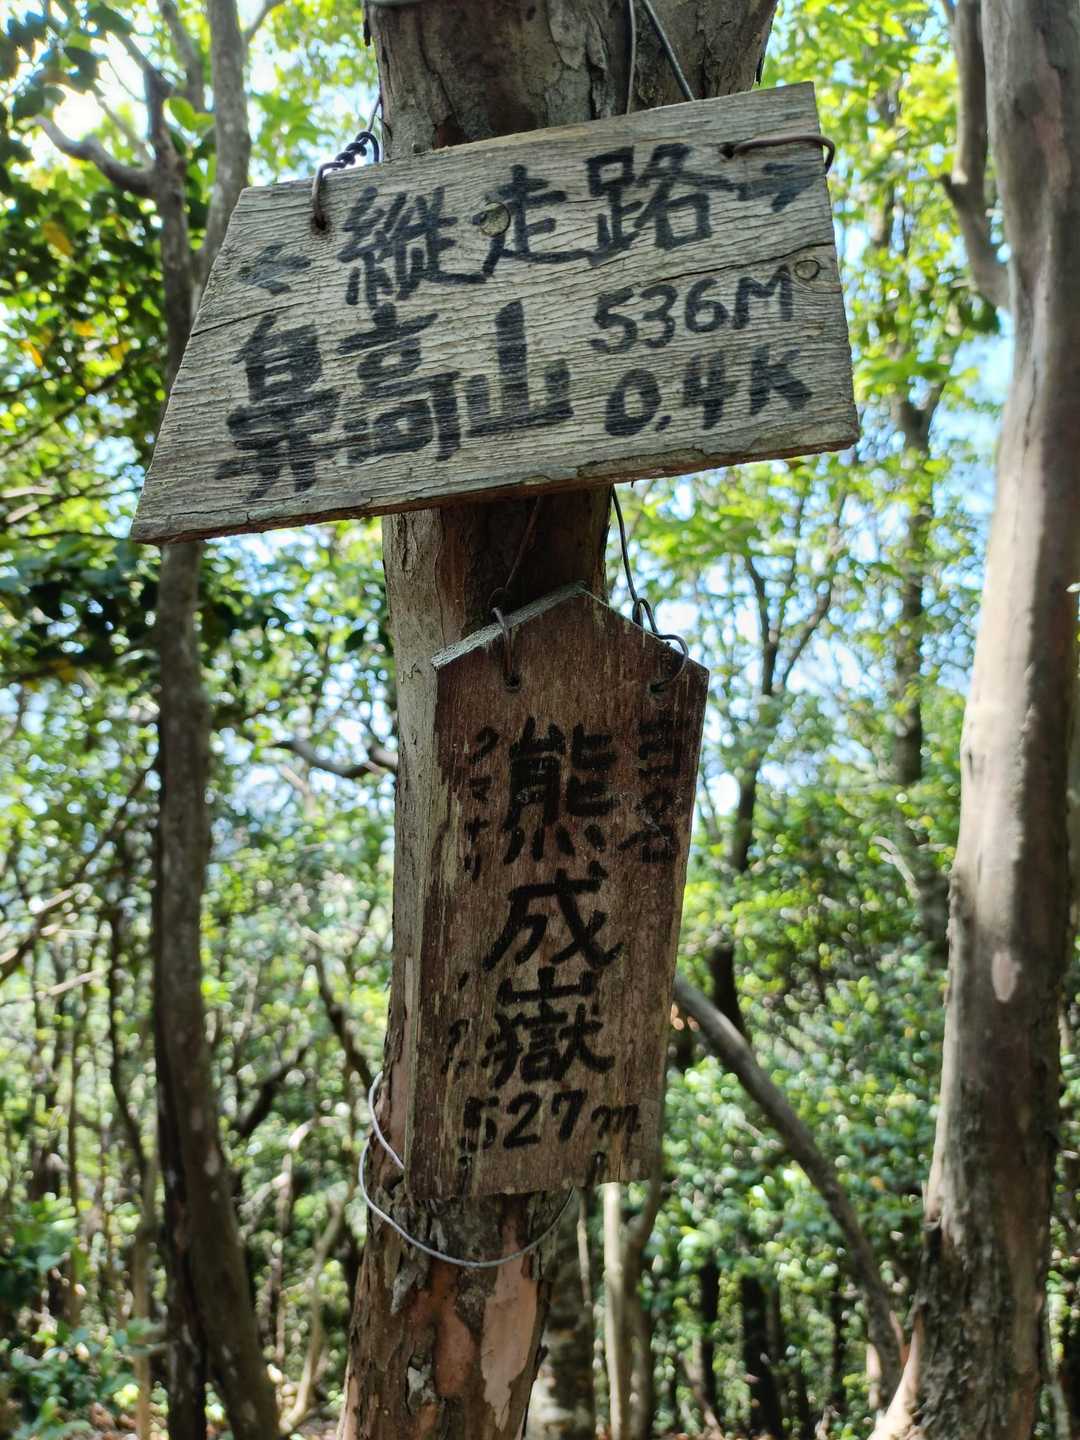 ← 縦走路 →
鼻高山 536M
0.4K
ココわ
熊成山嶽
クマナリ
527m